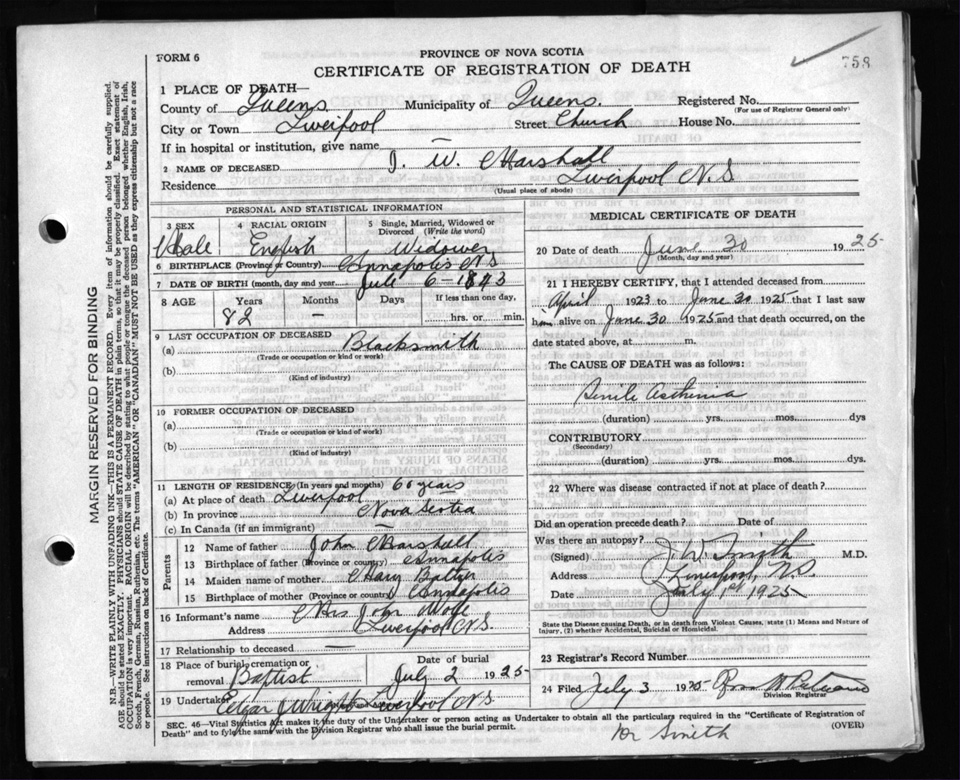 758
FORM 6
PROVINCE OF NOVA SCOTIA
CERTIFICATE OF REGISTRATION OF DEATH
1 PLACE OF DEATH—
County of Queens Municipality of Queens. Registered No.
(For use of Registrar General only)
City or Town Liverpool Street Church House No.
If in hospital or institution, give name —
2 NAME OF DECEASED J. W. Marshall
Residence Liverpool N.S.
(Usual place of abode)
PERSONAL AND STATISTICAL INFORMATION
3 SEX 4 RACIAL ORIGIN 5 Single, Married, Widowed or Divorced (Write the word)
Male English Widower
6 BIRTHPLACE (Province or Country) Annapolis N.S
7 DATE OF BIRTH (month, day and year) 6 - 1843
8 AGE Years Months Days If less than one day,
82 — hrs. or min.
9 LAST OCCUPATION OF DECEASED
(a) Blacksmith
(Trade or occupation or kind or work)
(b)
(Kind of industry)
10 FORMER OCCUPATION OF DECEASED
(a)
(Trade or occupation or kind of work)
(b)
(Kind of industry)
11 LENGTH OF RESIDENCE (In years and months) 60 years
(a) At place of death Liverpool
(b) In province Nova Scotia
(c) In Canada (if an immigrant) —
Parents
12 Name of father John Marshall
13 Birthplace of father (Province or country) Annapolis
14 Maiden name of mother Mary Baltzer
15 Birthplace of mother (Province or country) Annapolis
16 Informant's name Mrs John
Address Liverpool N.S.
17 Relationship to deceased —
18 Place of burial, cremation or removal Baptist Date of burial July 2 1925
19 Undertaker Edgar Wright Liverpool N.S
MEDICAL CERTIFICATE OF DEATH
20 Date of death June 30 1925
(Month, day and year)
21 I HEREBY CERTIFY, that I attended deceased from
April 1923 to June 30 1925 that I last saw
him alive on June 30 1925 and that death occurred, on
date stated above, at m.
The CAUSE OF DEATH was as follows:
Senile Asthenia
(duration) yrs. mos. dys
CONTRIBUTORY
(Secondary)
(duration) yrs. mos. dys.
22 Where was disease contracted if not at place of death?
Did an operation precede death? Date of
Was there an autopsy?
(Signed) J. W. Smith M.D.
Address Liverpool, N.S.
Date July 1st 1925
State the Disease causing Death, or in death from Violent Causes, state (1) Means and Nature of Injury, (2) whether Accidental, Suicidal or Homicidal.
23 Registrar's Record Number
24 Filed July 3 1925
Division Registrar
SEC. 46—Vital Statistics Act makes it the duty of the Undertaker or person acting as Undertaker to obtain all the particulars required in the "Certificate of Registration of
Death" and to fyle the same with the Division Registrar who shall issue the burial permit. (OVER)
Dr Smith
MARGIN RESERVED FOR BINDING
N.B.—WRITE PLAINLY WITH UNFADING INK—THIS IS A PERMANENT RECORD. Every item of information should be carefully supplied.
AGE should be stated EXACTLY. PHYSICIANS should STATE CAUSE OF DEATH in plain terms, so that it may be properly classified. Exact statement of
OCCUPATION is very important. RACIAL ORIGIN will be described by stating to what people or tongue the deceased person belonged whether English, Irish,
Scotch, French, German, Russian, Ruthenian, etc. The terms "AMERICAN" OR "CANADIAN" MUST NOT BE USED as they express citizenship but not a race
or people. See instructions on back of Certificate.